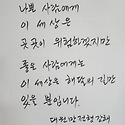 나쁜 사람에게
이 세상은
곳곳이 위험하겠지만
좋은 사람에게는
이 세상은 해맑의 길만
있을 뿐입니다.
대전만년첨 김희